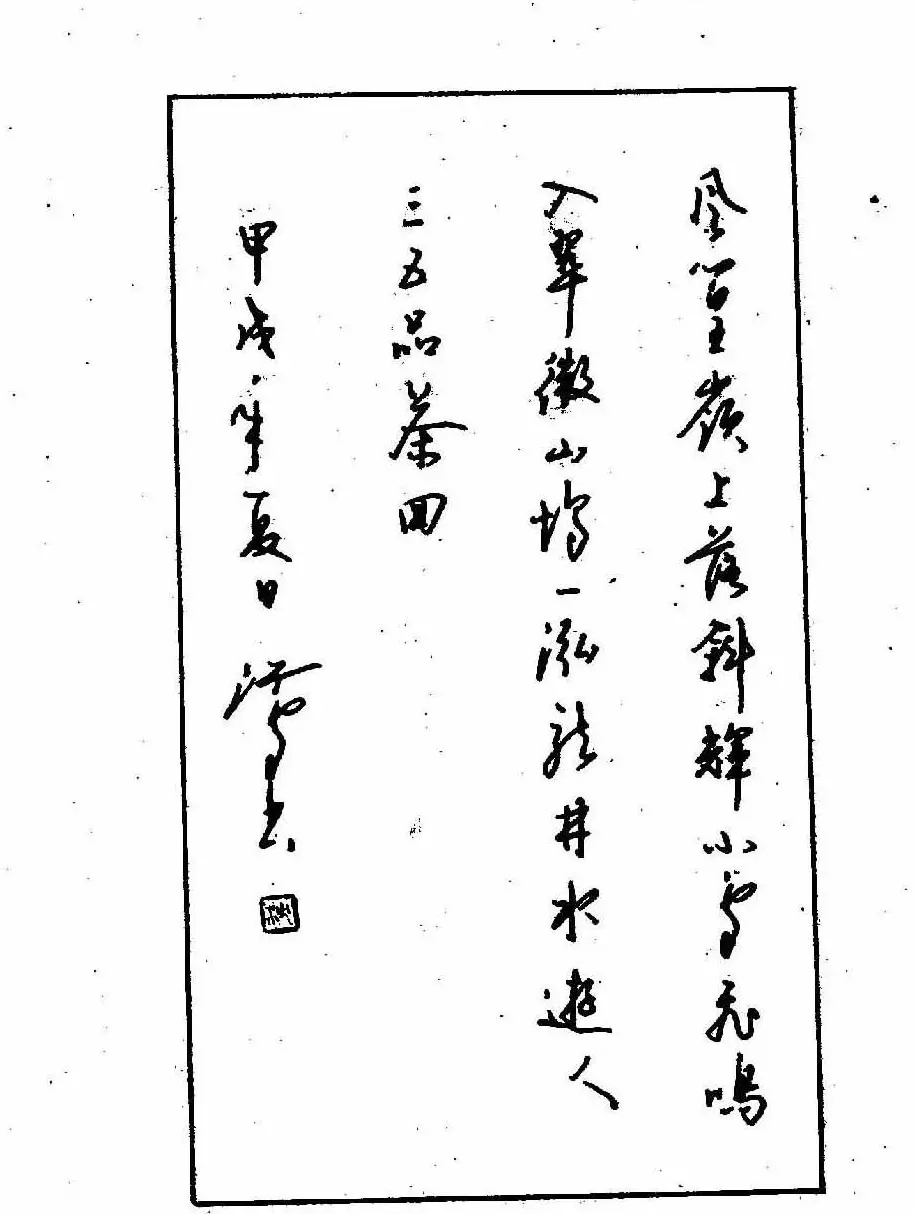 风篁嶺上落斜輝小鳥飛鳴
入翠微山坞一泓龍井水遊人
三五品茶回
甲戌年夏日 鴻书